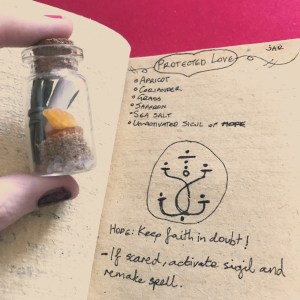 JAR
PROTECTED LOVE
• APRICOT
• CORIANDER
• GRASS
• SAFFRON
• SEA SALT
• UN-ACTIVATED SIGIL OF HOPE
HOPE: Keep faith in doubt!
- If scared, activate sigil and
remake spell.